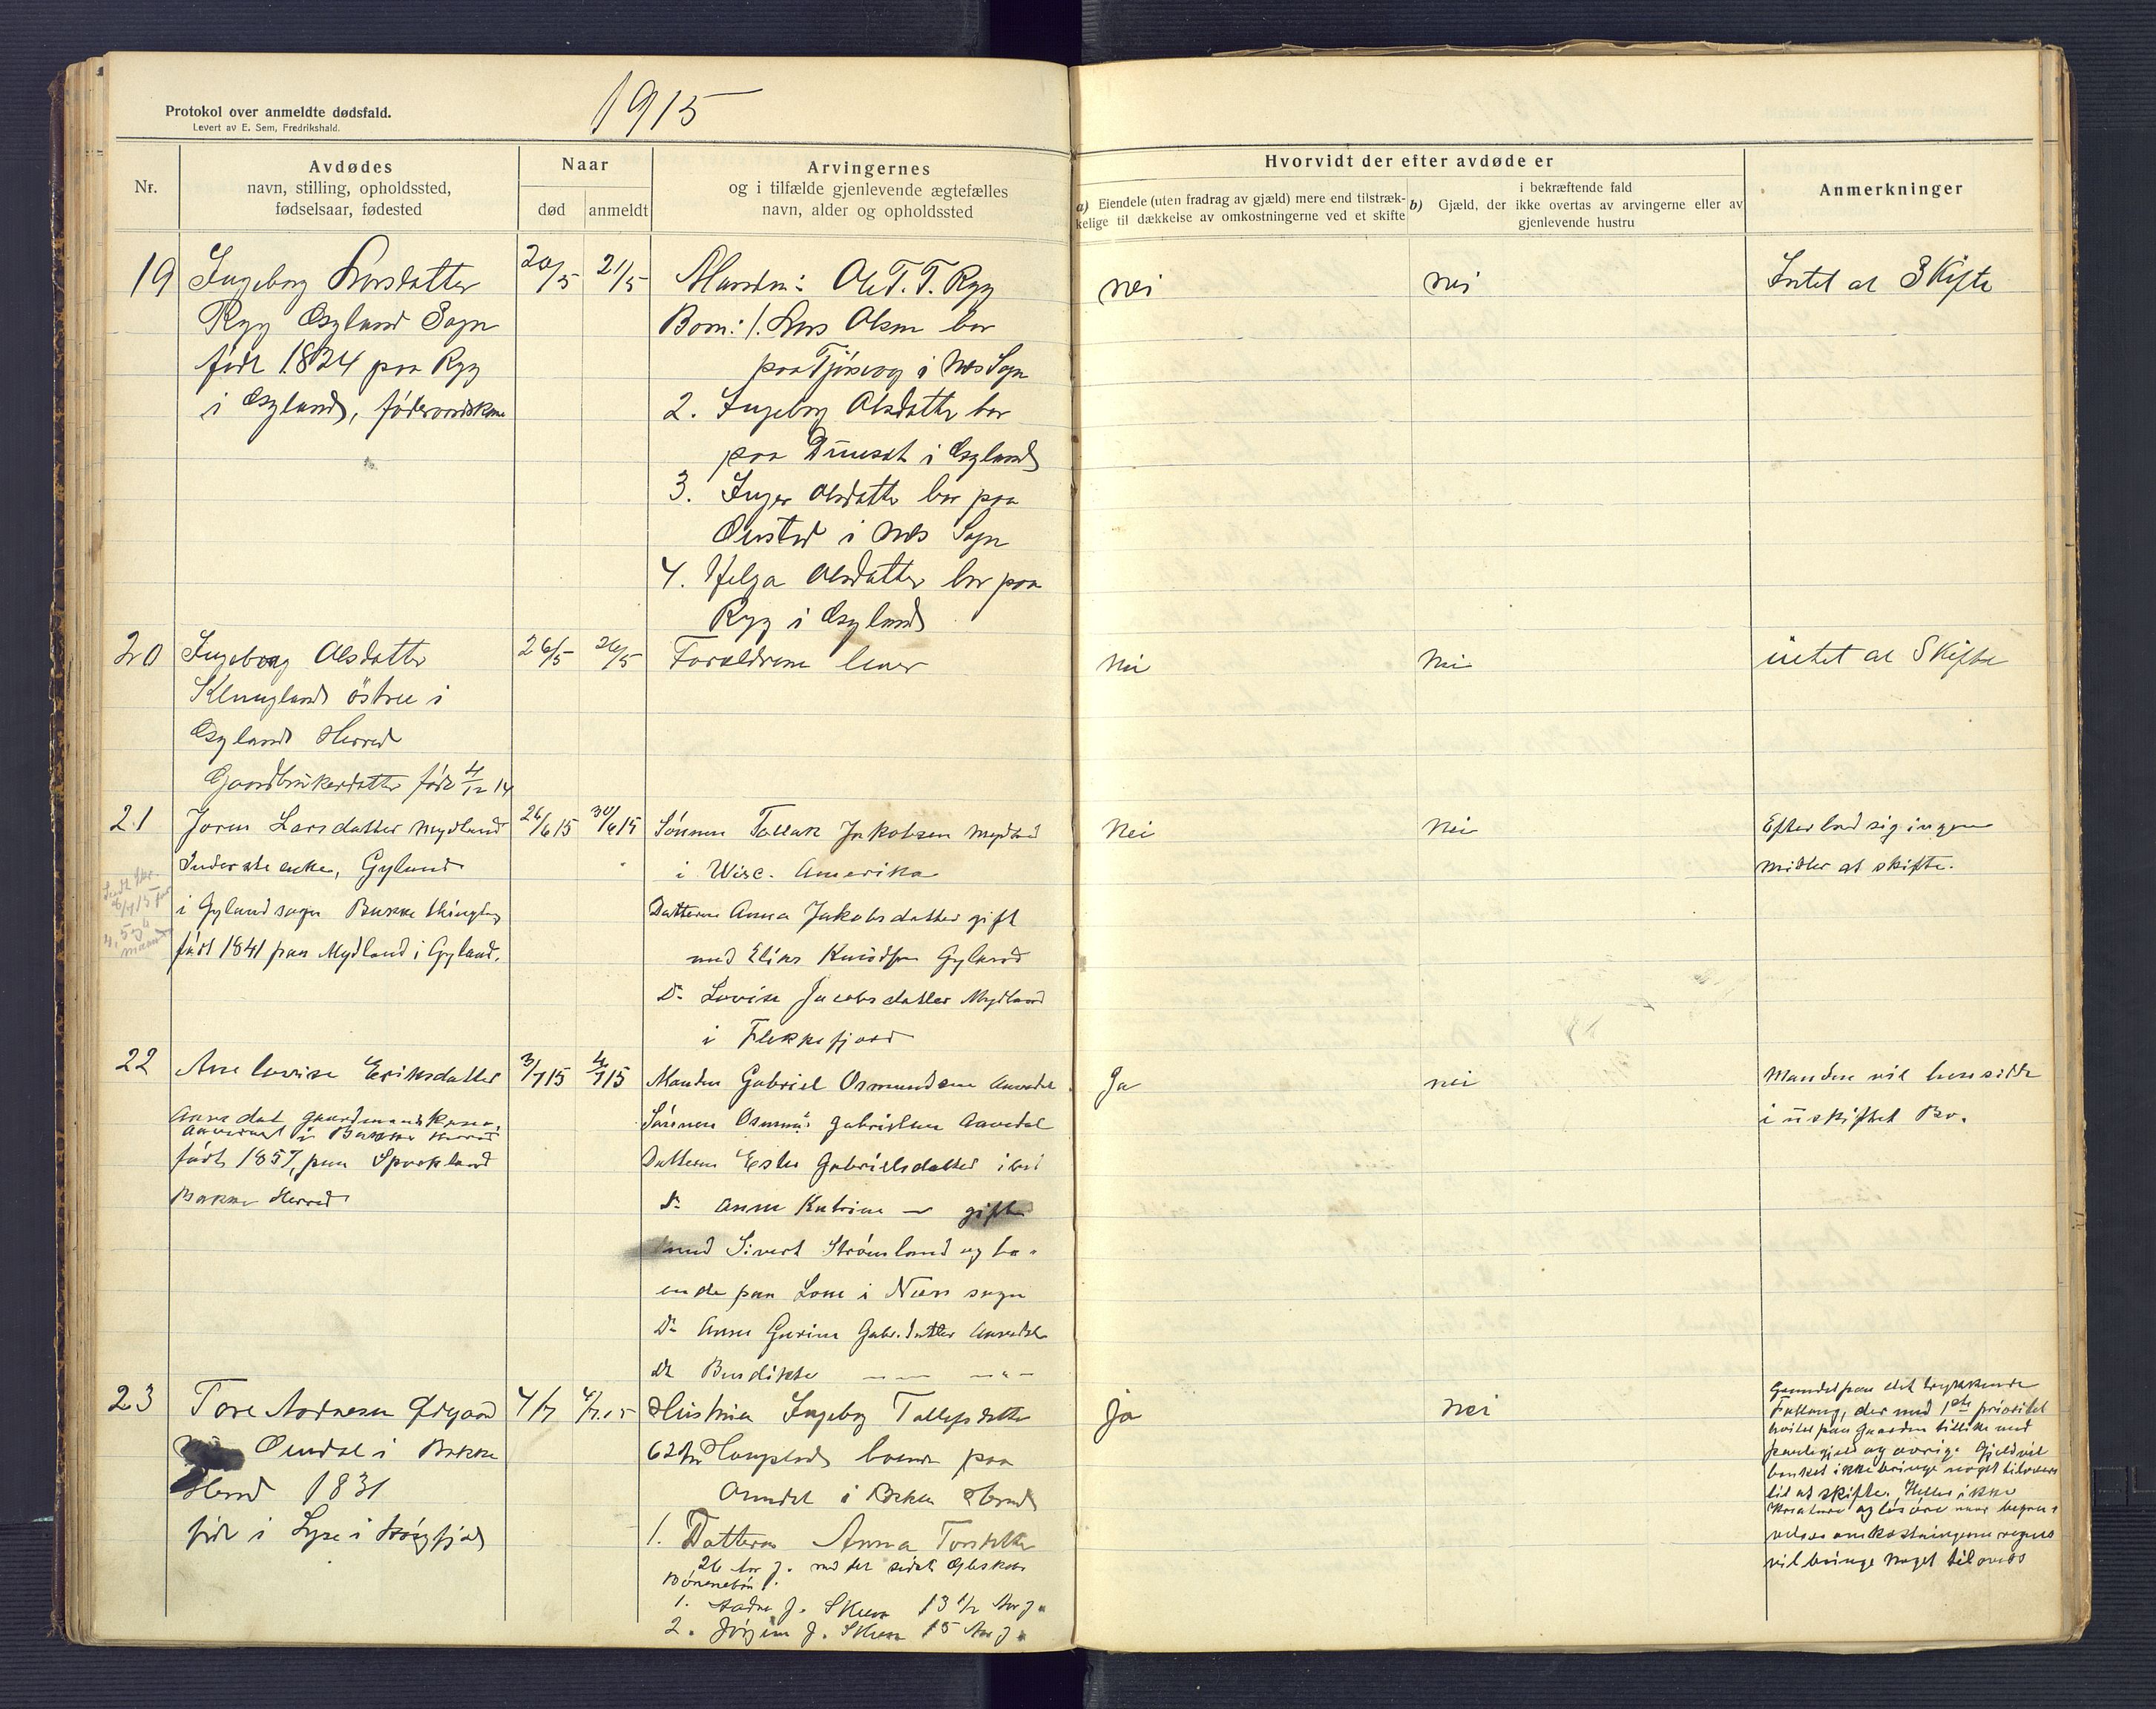 1915
Protokol over anmeldte dødsfald.
Levert av E. Sem, Fredrikshald.
Nr.
Avdødes
navn, stilling, opholdssted,
fødselsaar, fødested
Naar
død
anmeldt
Arvingernes
og i tilfælde gjenlevende ægtefælles
navn, alder og opholdssted
Hvorvidt der efter avdøde er
a) Eiendele (uten fradrag av gjæld) mere end tilstræk-
kelige til dækkelse av omkostningerne ved et skifte
b) i bekræftende fald
Gjæld, der ikke overtas av arvingerne eller av
gjenlevende hustru
Anmerkninger
19
Ingeborg Larsdatter
Ryg Gyland Sogn
født 1824 paa Ryg
i Gyland, föderaadskone
20/5
21/5
Manden: Ole T. T. Ryg
Born: 1. Lars Olsen bor
paa Tjörsvog i Nes Sogn
2. Ingeborg Olsdatter bor
paa Dunsæt i Gyland
3. Inger Olsdatter bor paa
i Nes Sogn
4. Helga Olsdatter bor paa
Ryg i Gyland
nei
nei
Intet at Skifte
20
Ingeborg Olsdatter
östre i
Gyland Herred
Gaardbrukerdatter född 4/12 14
26/5
26/5
Forældrene lever
Nei
Nei
intet at Skifte
21
Joren Larsdatter Mydland
Inderste enke, Gyland
i Gyland sogn Bakke thinglag
født 1841 paa Mydland i Gyland.
26/6 15
30/6 15
Sönnen Tallak Jakobsen Mydland
i Wisc. Amerika
Datteren Anna Jakobsdatter gift
med Elias Knudsen Gyland
Do Lovise Jacobsdatter Mydland
i Flekkefjord
Nei
Nei
Efterlod sig ingen
midler at skifte.
22
Ane Lovise Eriksdatter
Aavedal gaardmandskone,
Aavedal i Bakke Herred
født 1857, paa
Bakke Herred
3/7 15
4/7 15
Manden Gabriel Osmundsen Aavedal
Sönnen Osmund Gabrielsen Aavedal
Datteren Ester Gabrielsdatter ibid
Do Anne Katrine — gift
med Sivert Strömland og bo-
ende paa Lone i Næs sogn
Do Anna Gurine Gabr.datter Aavedal
Do Bendikte — — — " —
Ja
nei
Manden vil hensidde
i uskiftet Bo.
23
Tore Aadnesen Ødegaard
Omdal i Bakke
Herred 1831
född i Lyse i Høgsfjord
4/7
4/7.15
Hustruen Ingeborg Tallefsdatter
62 Aar boende paa
Omdal i Bakke Herred
1. Datteren Anna Torsdatter
26 Aar g. med det sidste Egteskab
Börnebörn:
1. Aadne J. Skeen 13 1/2 Aar g.
2. Jörgine J. Skeen 15 Aar g.
Ja
nei
Grundet paa det trykkende
Føderaad, der med 1ste prioritet
hviler paa Gaarden tillike med
pantegjeld og øvrige Gjeld vil
bruket ikke bringe noget tilovers
til at skifte. Heller ikke
Kreature og lösøre naar begra-
velsesomkostningerne regnes
vil bringe noget tilovers